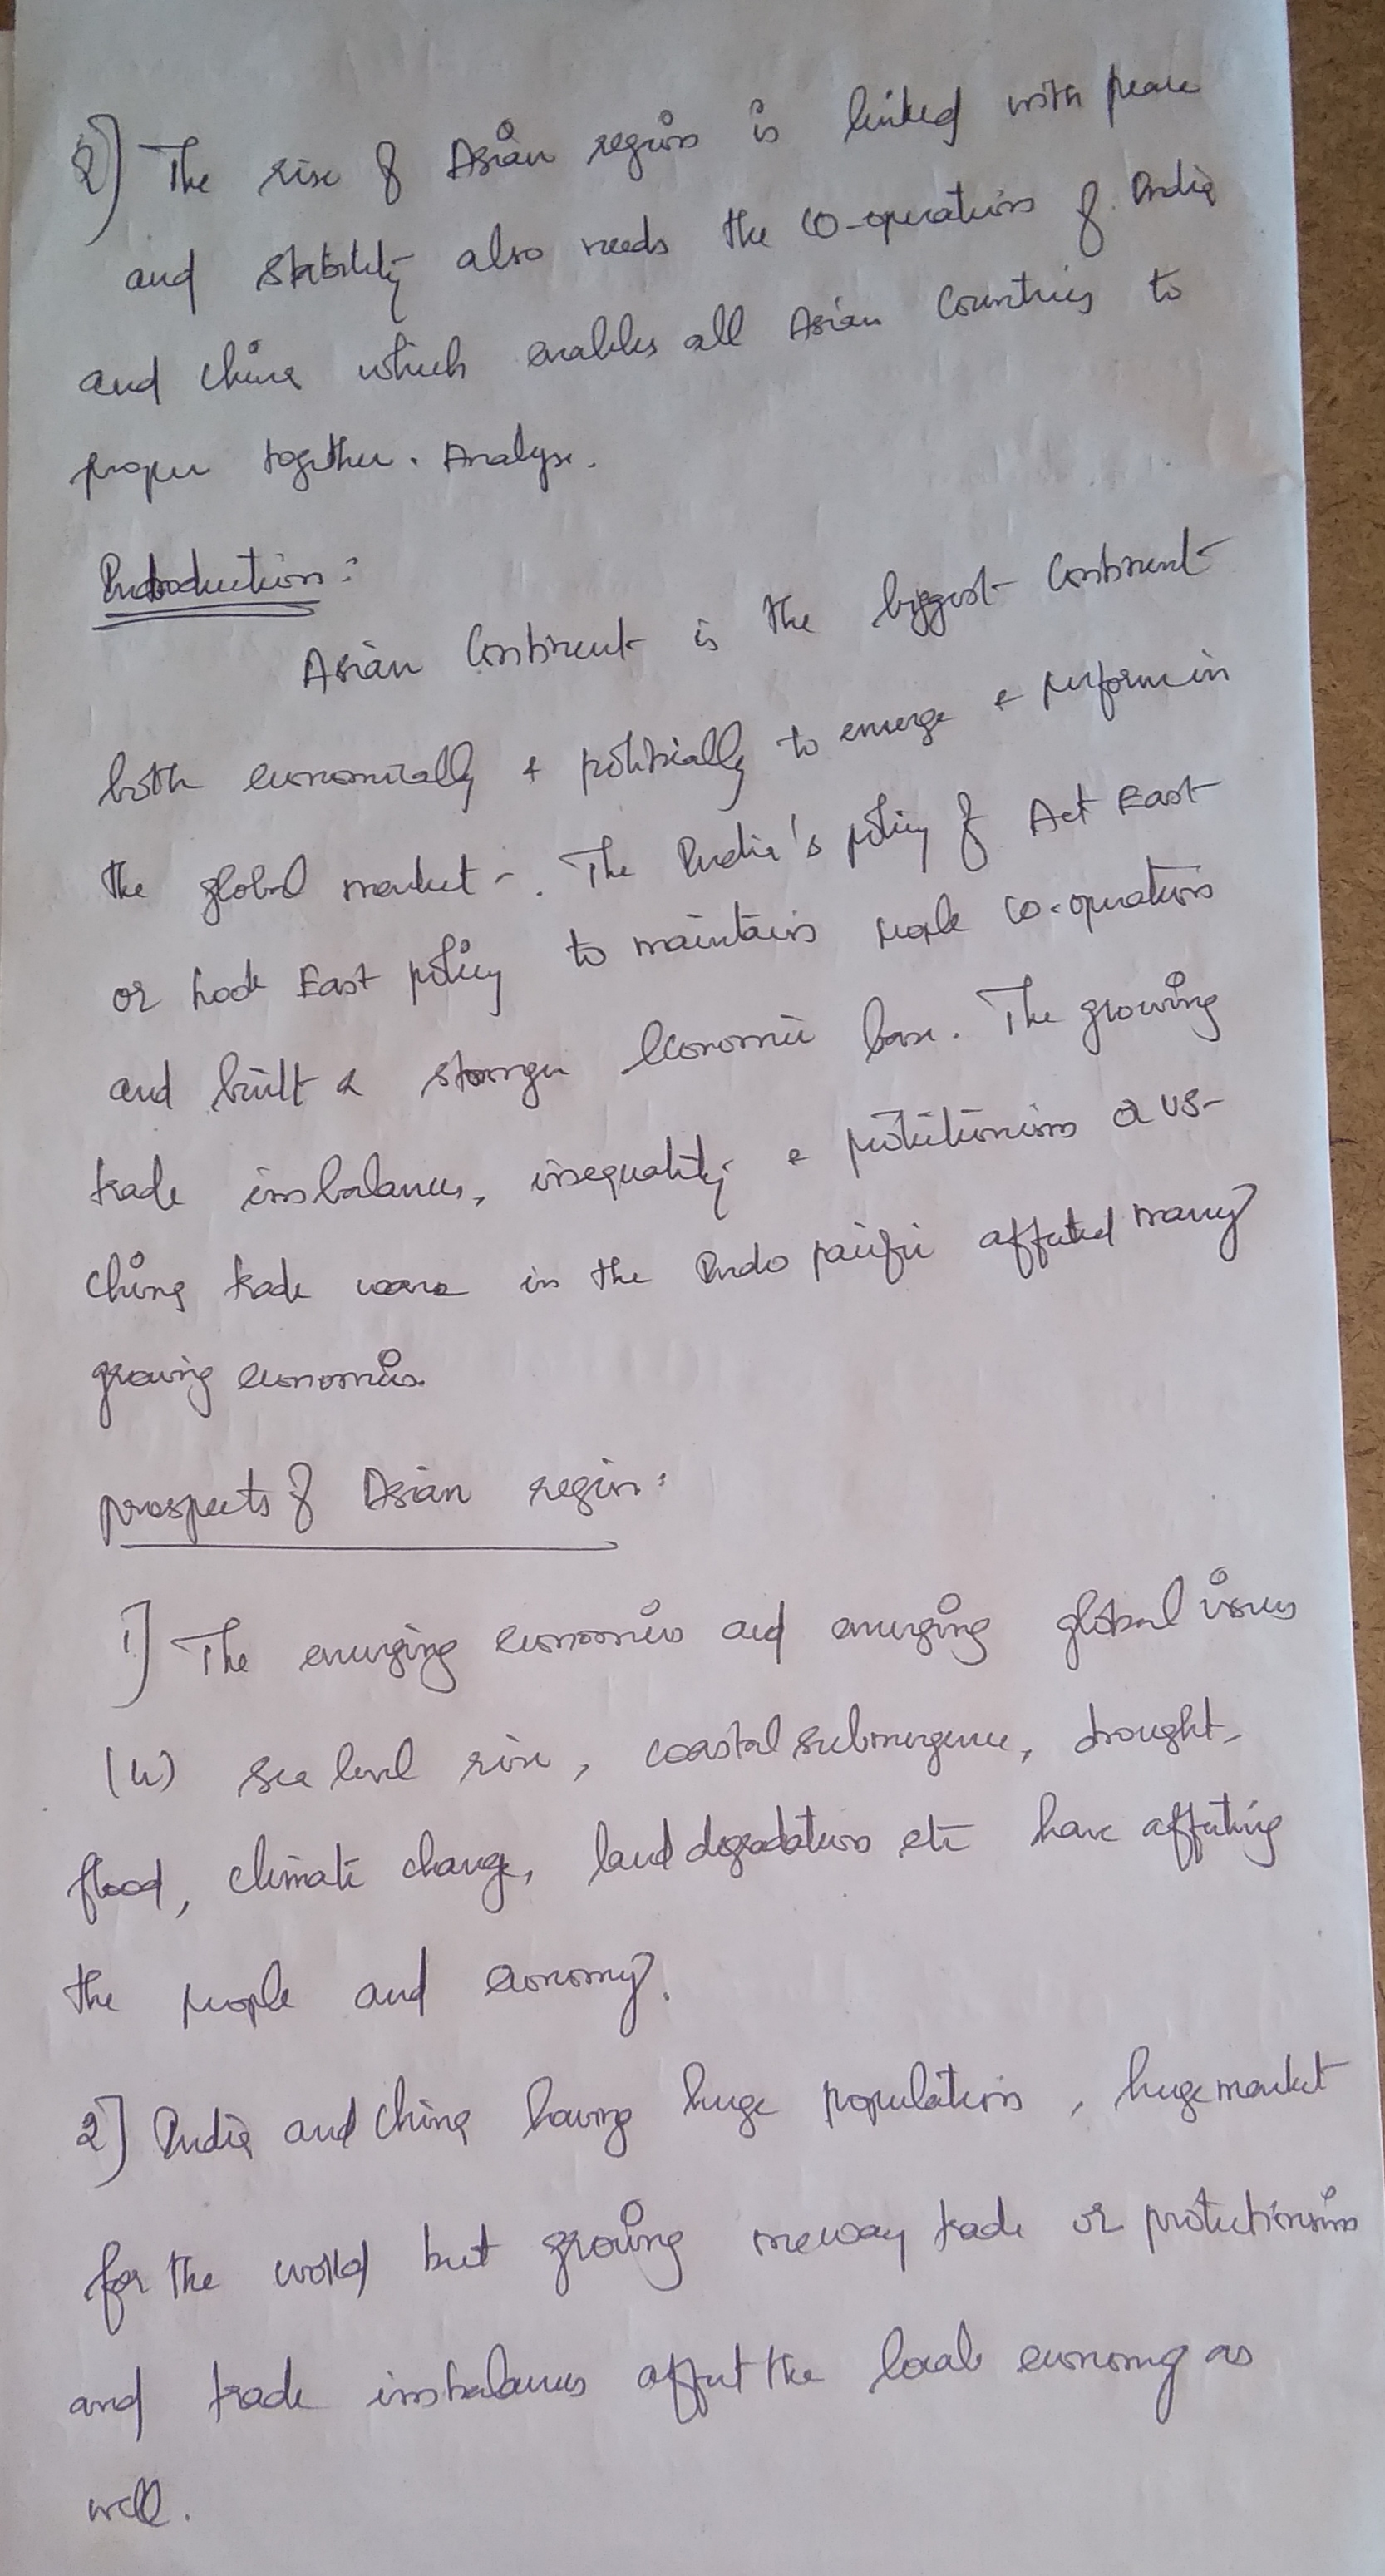 2) The rise of Asian region is linked with peace
and stability also needs the co-operation of India
and china which enables all Asian Countries to
proper together. Analyse.
Introduction:
Asian Continent is the biggest Continent
both economically & politically to emerge & perform in
the global market. The India's policy of Act East
or Look East policy to maintain people co-operation
and built a stronger economic base. The growing
trade imbalances, inequality & protectionism & US-
China trade wars in the Indo pacific affected many
growing economies.
prospects of Asian region:
1) The emerging economies and emerging global issues
(ie) sea level rise, coastal submergence, drought,
flood, climate change, land degradation etc have affecting
the people and economy.
2) India and China having huge population, huge market
for the world but growing oneway trade or protectionism
and trade imbalances affect the local economy as
well.